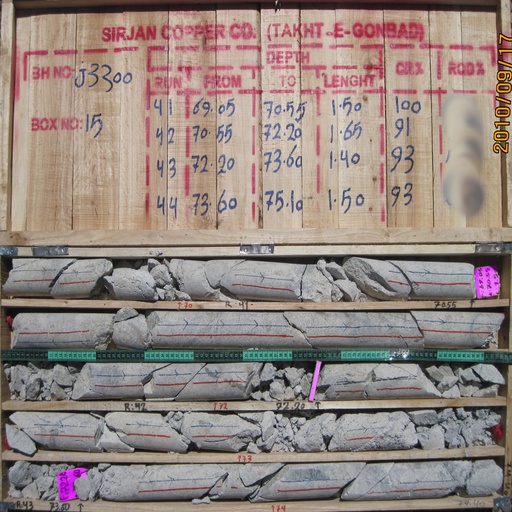 SIRJAN COPPER CO. (TAKHT-E-GONBAD)
BH NO: J3300
BOX NO: 15
DEPTH
RUN FROM TO LENGHT CR% RQD%
41 69.05 70.55 1.50 100
42 70.55 72.20 1.65 91
43 72.20 73.60 1.40 93
44 73.60 75.10 1.50 93
2010/09/17
↑70 R:41- 70.55
R:42 ↑72 72.20 ↑
↑73
R:43 73.60 ↑ ↑74